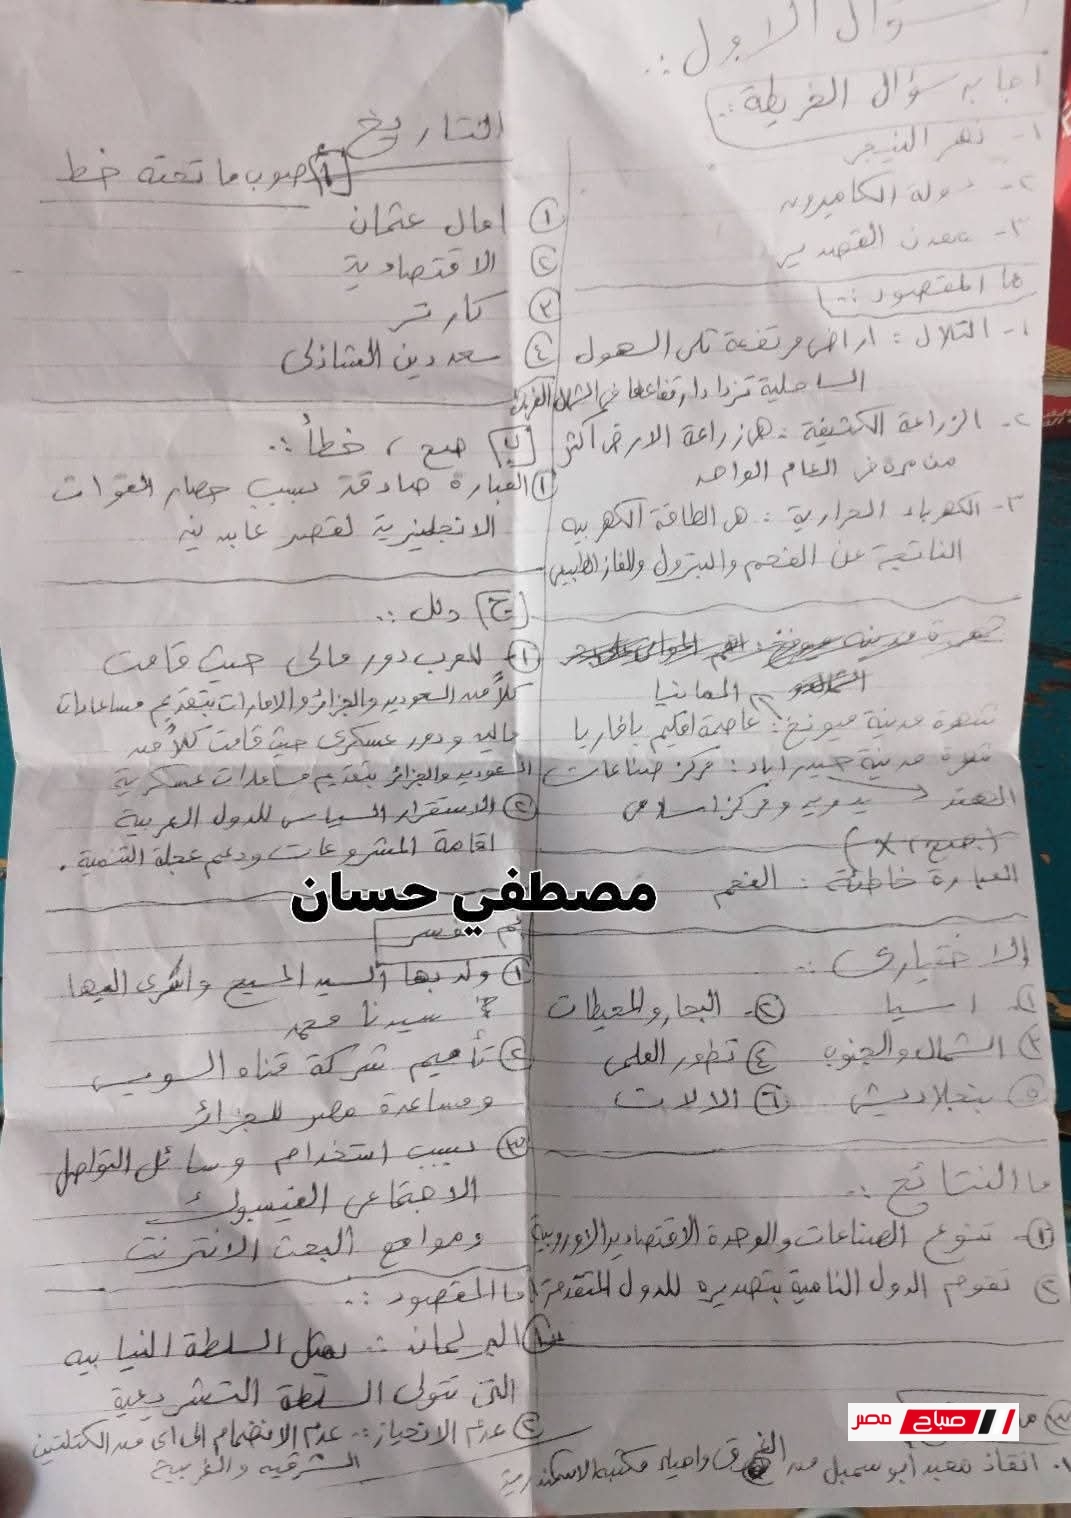 السؤال الاول :.
اجابه سؤال الخريطة :.
١- نهر النيجر
٢- دولة الكاميرون
٣- معدن القصدير
ما المقصود :.
١- التلال : اراضى مرتفعة تلى السهول
الساحلية تزداد ارتفاعها فى الشمال الغربى
٢- الزراعة الكثيفة : هى زراعة الارض اكثر
من مرة فى العام الواحد
٣- الكهرباء الحرارية : هى الطاقة الكهربيه
الناتجة عن الفحم والبترول والغاز الطبيعى
المانيا
شهرة مدينة ميونخ : عاصمة اقليم بافاريا
شهرة مدينة حيدر اباد : مركز صناعات
الهند يدويه ومركز اسلامى
(صح ، X)
العبارة خاطئة : الفحم
الاختيارى :.
١- اسيا ٢- البحار والمحيطات
٣ الشمال والجنوب ٤ تطور العلمى
٥ بنجلاديش ٦ الالات
ما النتائج :.
١- تنوع الصناعات والوحدة الاقتصاديه الاوروبية
٢ تقوم الدول النامية بتصديره للدول المتقدمة
١. انقاذ معبد أبو سمبل من الغرق واحياء مكتبه الاسكندرية
التاريخ
أ صوب ما تحته خط
١ امال عثمان
٢ الاقتصادية
٣ كارتر
٤ سعد دين الشاذلى
ب صح ، خطأ :.
١ العبارة صادقة بسبب حصار القوات
الانجليزية لقصر عابدين
ج دلل :.
١- للعرب دور مالى حيث قامت
كلاً من السعوديه والجزائر والامارات بتقديم مساعدات
ماليه ودور عسكرى حيث قامت كلاً من
السعوديه والجزائر بتقديم مساعدات عسكرية
٢ الاستقرار السياسى للدول العربية
اقامة المشروعات ودعم عجلة التنمية .
مصطفي حسان
بم تفسر
١ ولد بها السيد المسيح واسرى اليها
سيدنا محمد
٢ تأميم شركة قناه السويس
ومساعدة مصر للجزائر
٣ بسبب استخدام وسائل التواصل
الاجتماعى الفيسبوك
ومواقع البحث الانترنت
ما المقصود :.
١ البرلمان :. يمثل السلطة النيابيه
التى تتولى السلطة التشريعية
٢ عدم الانحياز :. عدم الانضمام الى اى من الكتلتين
الشرقيه والغربية
صباح مصر